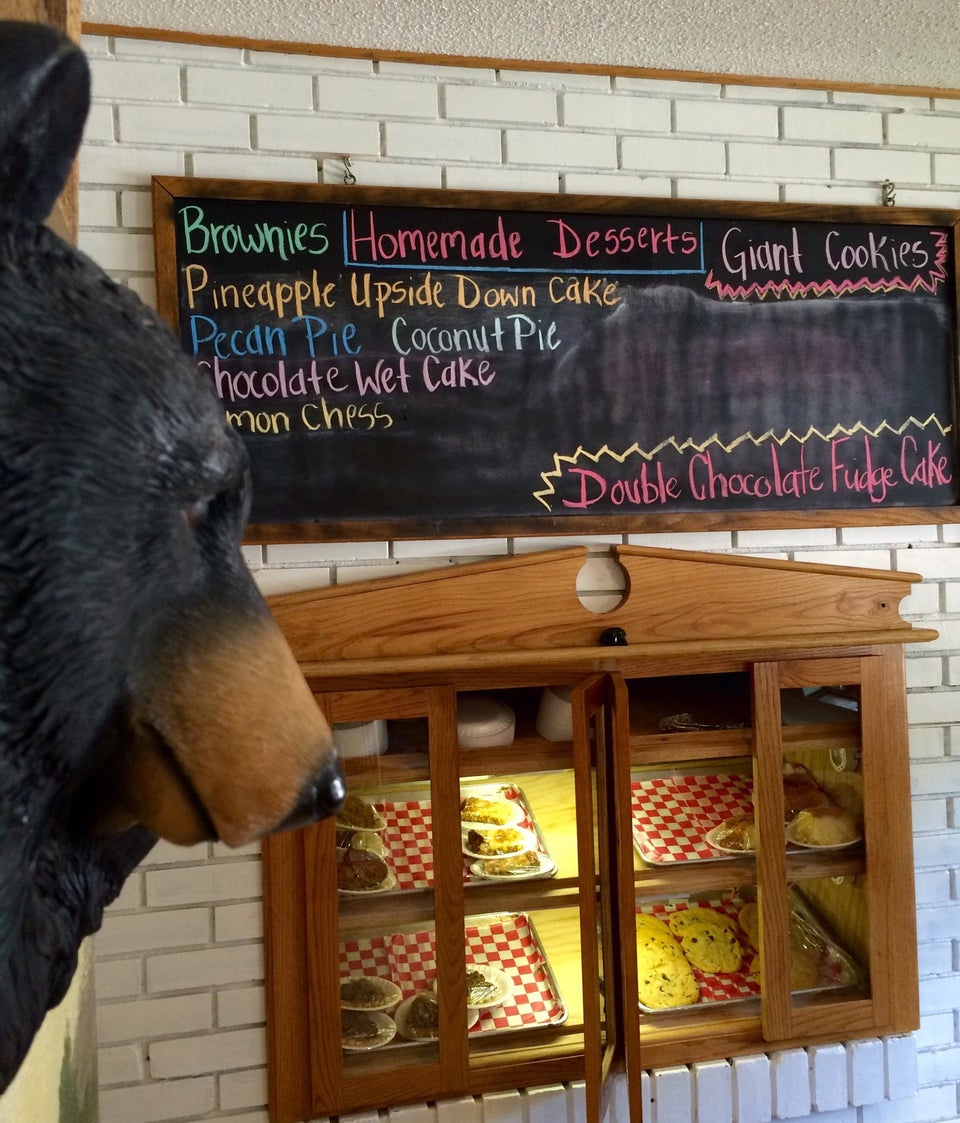 Brownies Homemade Desserts Giant Cookies
Pineapple Upside Down Cake
Pecan Pie Coconut Pie
Chocolate Wet Cake
mon Chess
Double Chocolate Fudge Cake